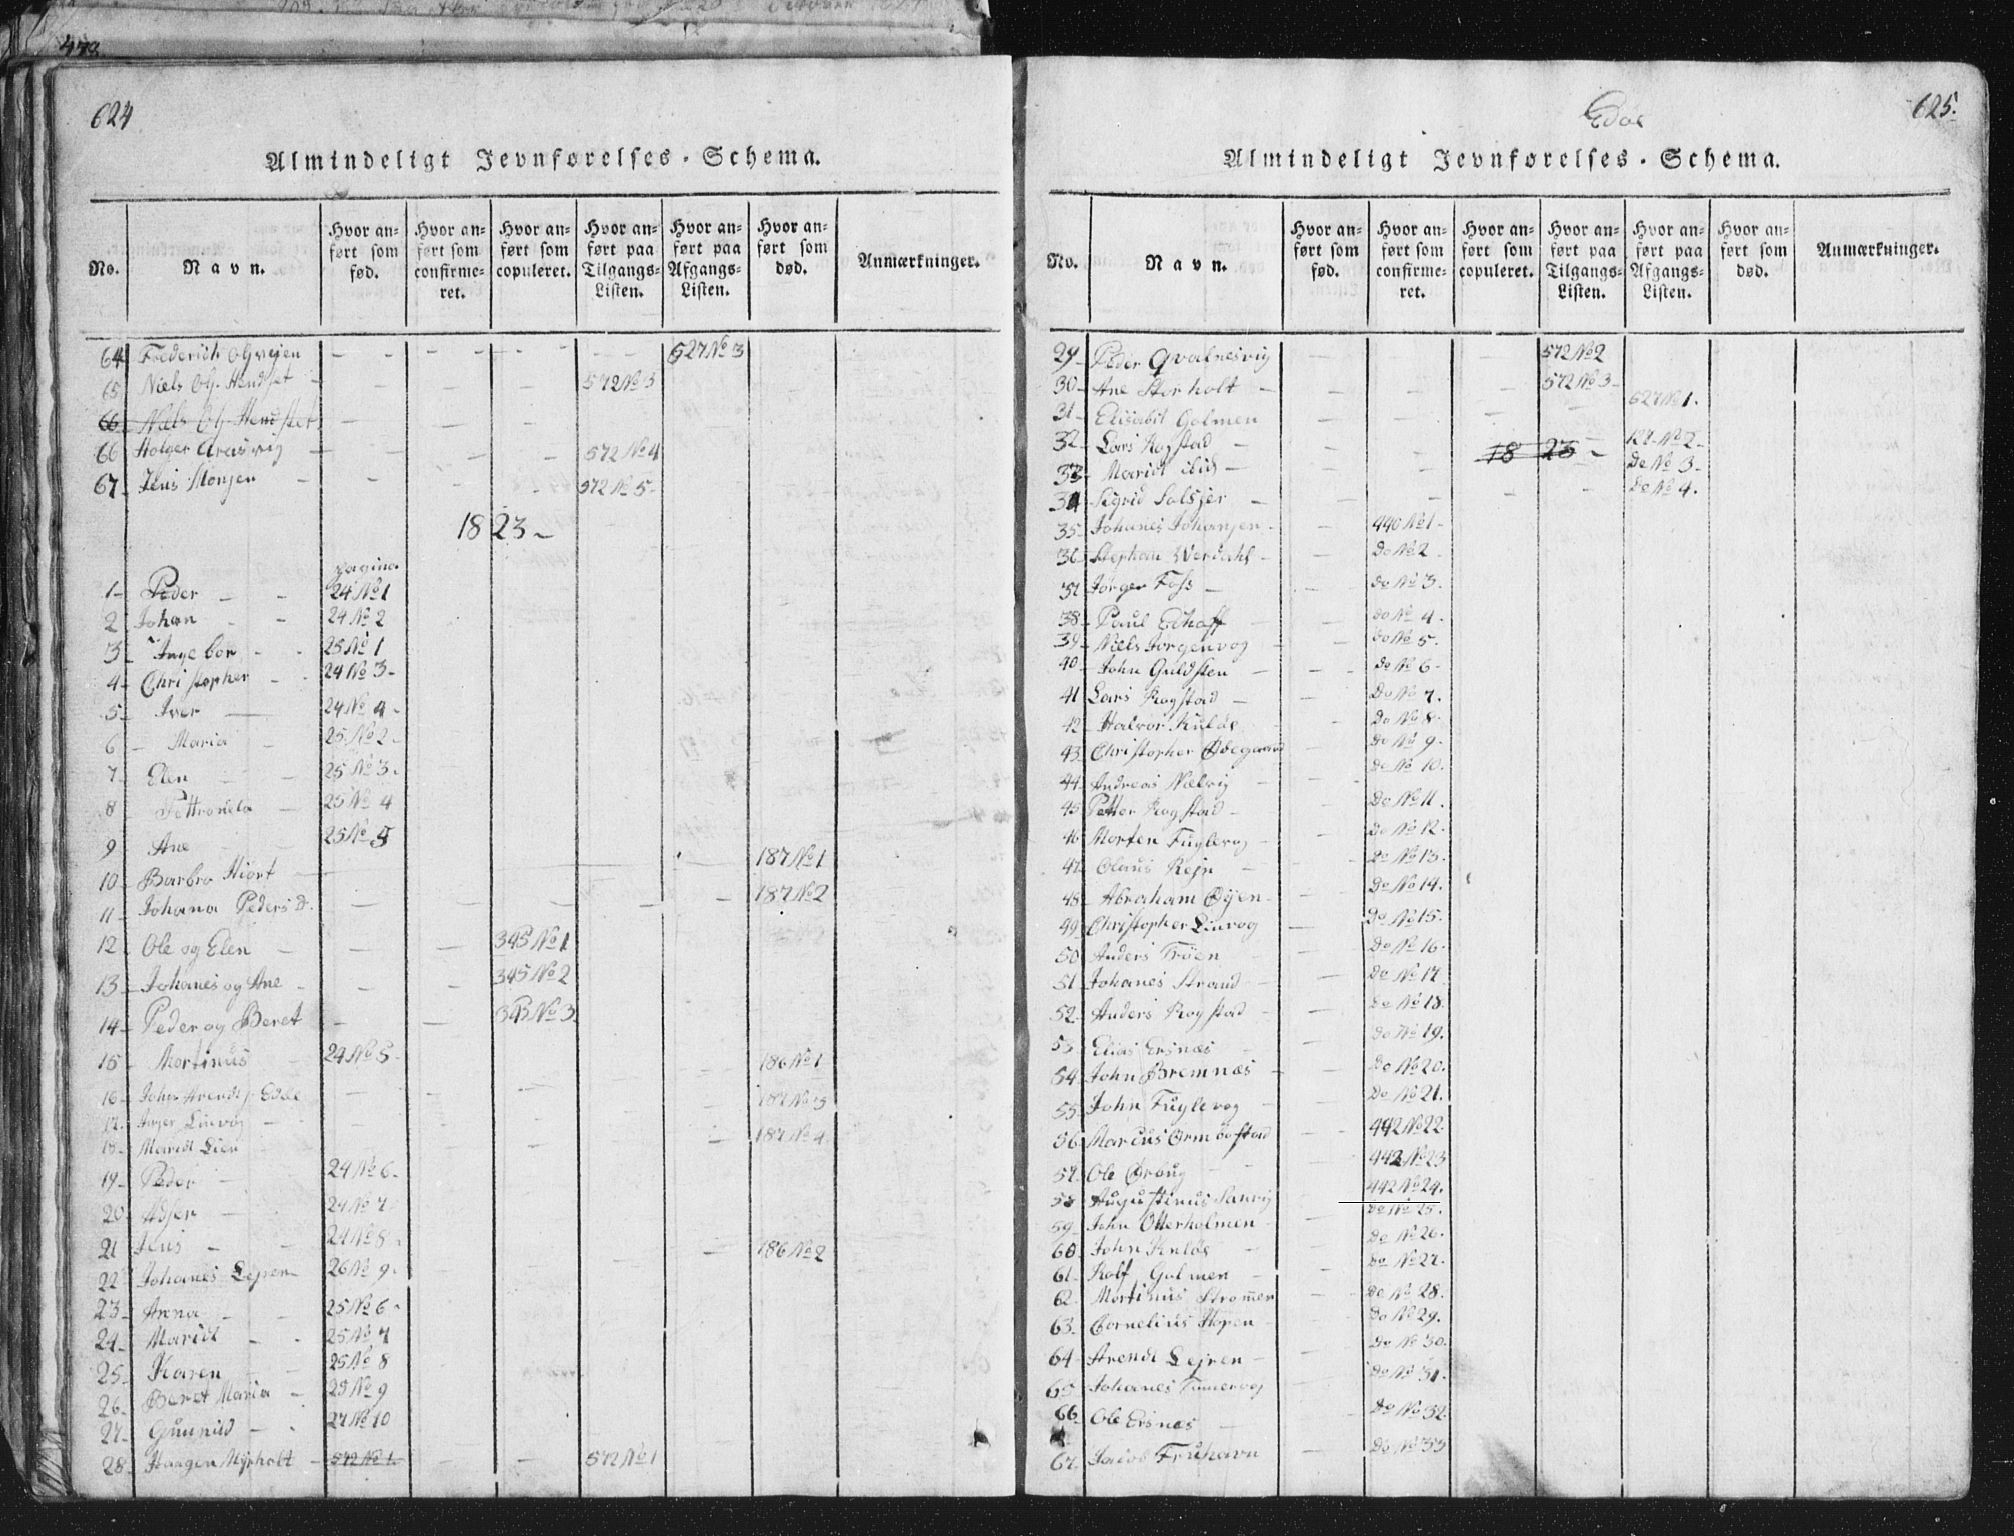 478
624
Almindeligt Jevnførelses-Schema.
No. Navn. Hvor anført som fød. Hvor anført som confirmeret. Hvor anført som copuleret. Hvor anført paa Tilgangs-Listen. Hvor anført paa Afgangs-Listen. Hvor anført som død. Anmærkninger.
64 Frederich 627 No 3
65 Niels 572 No 3
66 Niels
66 Holger 572 No 4
67 Jens Monsen 572 No 5
1823
pagina
1 Peder 24 No 1
2 Johan 24 No 2
3 Ingebor 25 No 1
4 Christopher 24 No 3
5 Iver 24 No 4
6 Maria 25 No 2
7 Elen 25 No 3
8 Pettronela 25 No 4
9 Ane 25 No 5
10 Barbro Hiort 187 No 1
11 Johana Peders D. 187 No 2
12 Ole og Elen 345 No 1
13 Johanes og Ane 345 No 2
14 Peder og Beret 345 No 3
15 Mortinus 24 No 5 186 No 1
16 John 187 No 3
17 Inger Linvog 187 No 4
18 Maridt Lien
19 Peder 24 No 6
20 24 No 7
21 Jens 24 No 8 186 No 2
22 Johanes Lejren 26 No 9
23 Anna 25 No 6
24 Maridt 25 No 7
25 Karen 25 No 8
26 Beret Maria 25 No 9
27 Gunnild 27 No 10
28 Haagen Myrholt 572 No 1 572 No 1
Edøe
625.
Almindeligt Jevnførelses-Schema.
No. Navn. Hvor anført som fød. Hvor anført som confirmeret. Hvor anført som copuleret. Hvor anført paa Tilgangs-Listen. Hvor anført paa Afgangs-Listen. Hvor anført som død. Anmærkninger.
29 Peder Qvalnesvig 572 No 2
30 Ane Storholt 572 No 3
31 Elisabet Golmen 627 No 1.
32 Lars Rogstad 127 No 2
1823
33 Maridt Do No 3
34 Sigrid Do No 4.
35 Johanes Johansen 440 No 1
36 Stephan Werdahl Do No 2
37 Jørgen Foss Do No 3.
38 Paul Do No 4.
39 Niels Jørgenvog Do No 5.
40 John Guldsten Do No 6
41 Lars Rogstad Do No 7.
42 Halvor Kuløe Do No 8
43 Christopher Ødegaard Do No 9
44 Andreas Nælvig Do No 10.
45 Petter Rogstad Do No 11.
46 Morten Fuglevog Do No 12.
47 Olaus Rejn Do No 13.
48 Abraham Øyen Do No 14.
49 Christopher Linvog Do No 15.
50 Anders Trøen Do No 16.
51 Johanes Strand Do No 17
52 Anders Rogstad Do No 18.
53 Elias Ersnæs Do No 19.
54 John Bremnæs Do No 20.
55 John Fuglevog Do No 21.
56 Marcus Ormbostad 442 No 22
57 Ole Ørbug 442 No 23
58 Augustinus Sanvig 442 No 24.
59 John Otterholmen Do No 25.
60 John Kuløe Do No 26.
61 Rolf Golmen Do No 27.
62 Mortinus Strømen Do No 28.
63 Cornelius Hopen Do No 29.
64 Arendt Lejren Do No 30.
65 Johanes Do No 31.
66 Ole Ersnes Do No 32.
67 Jacob Fruhavn Do No 33